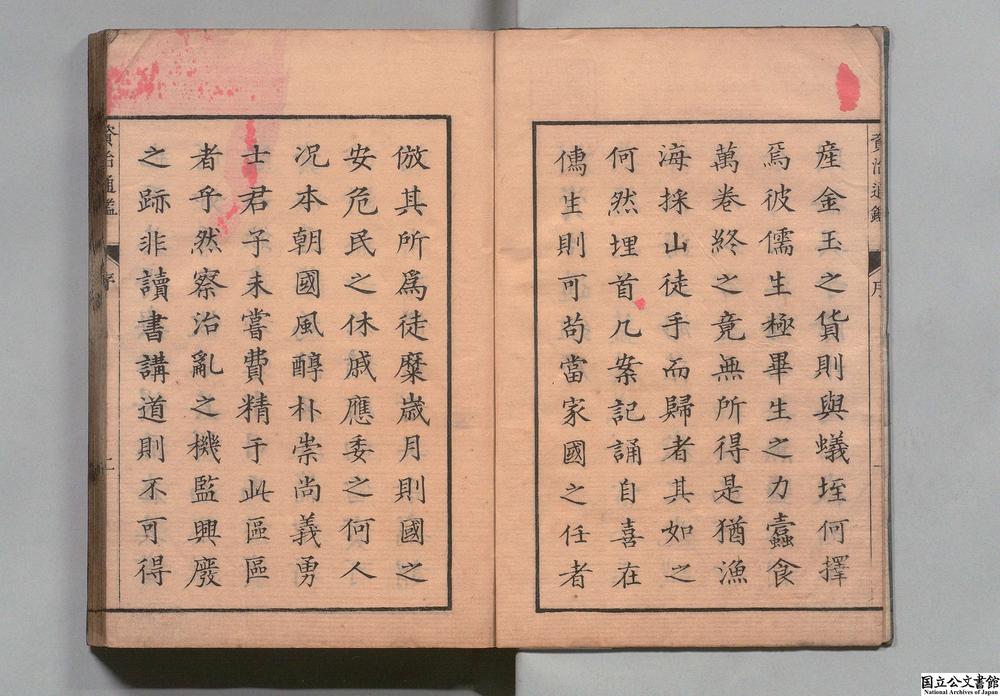 産金玉之貨則與蟻垤何擇
焉彼儒生極畢生之力蠹食
萬卷終之竟無所得是猶漁
海採山徒手而歸者其如之
何然埋首几案記誦自喜在
儒生則可苟當家國之任者
倣其所爲徒糜歲月則國之
安危民之休戚應委之何人
况本朝國風醇朴崇尚義勇
士君子未嘗費精于此區區
者乎然察治亂之機監興廢
之跡非讀書講道則不可得
資治通鑑
序
一
資治通鑑
序
二
国立公文書館
National Archives of Japan